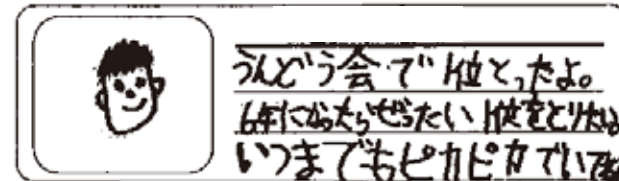 うんどう会で1位とったよ。
6年になったらぜったい1位をとりたいな
いつまでもピカピカでいてね